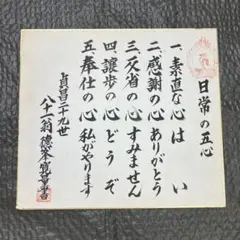 日常の五心
一、素直な心　はい
二、感謝の心　ありがとう
三、反省の心　すみません
四、譲歩の心　どうぞ
五、奉仕の心　私がやります
貞昌二十九世
八十一翁